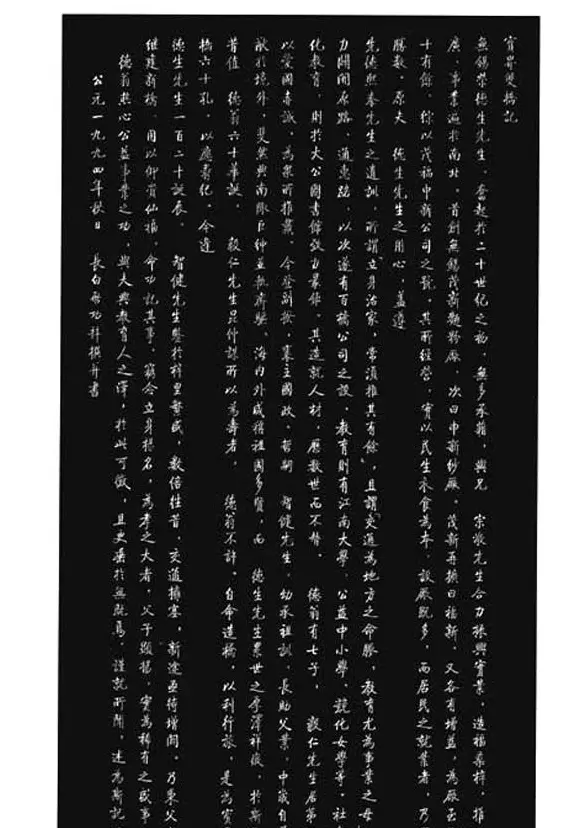 寶界雙橋記
無錫榮德生先生，奮起於二十世紀之初，無多承藉，與兄　宗敬先生合力振興實業，造福桑梓，推
廣事業遍於南北，首創無錫茂新麵粉廠，次曰申新紗廠，茂新再擴曰福新，又各有增益，為廠至
十有餘，綜以茂福申新公司之號，其所經營，實以民生衣食為本，設廠既多，而居民之就業者，乃
勝數，原夫　德生先生之用心，蓋遵
先德熙泰先生之遺訓，所謂「立身治家，常須推其有餘」，且謂「交通為地方之命脈，教育尤為事業之母
力開闢原路，通惠路，以次遂有百橋公司之設，教育則有江南大學，公益中小學，競化女學等，社
化教育，則於大公圖書館致力最備，其造就人材，歷數世而不替，　德翁有七子，　毅仁先生居第
以愛國赤誠，為眾所推崇，令登副揆，襄主國政，哲嗣　智健先生，幼承祖訓，長助父業，中歲自
猷於境外，斐然與南服巨紳並執席興，海內外咸稱祖國多賢，而　德生先生累世之厚澤祥徵，於斯
昔值　德翁六十華誕，　毅仁先生昆仲謀所以為壽者，　德翁不許，自命造橋，以利行旅，是為寶
橋六十孔，以應壽紀，今逢
德生先生一百二十誕辰，　智健先生鑒於梓里繁盛，數倍往昔，交通搏塞，新途亟待增闢，乃秉父
繼建新橋，用以仰齊仙福，命功記其事，竊念立身揚名，為孝之大者，父子顯揚，實為稀有之盛事
德翁熱心公益事業之功，與大興教育人之澤，於此可徵，且更垂於無既焉，謹就所聞，述為斯記
公元一九九四年秋日　長白啟功拜撰并書